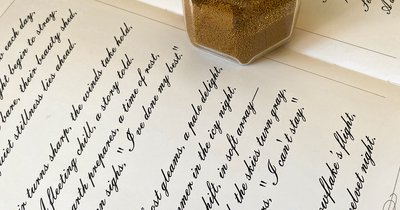 s each day,
t begin to stray.
bare, their beauty shed,
uiet stillness lies ahead.
ir turns sharp, the winds take hold,
A fleeting chill, a story told.
arth prepares, a time of rest,
n sighs, "I've done my best."
ost gleams, a pale delight,
mer in the icy night.
hift, in soft array—
the skies turn gray,
s, "I can't say."
nowflake's flight,
elvet night.